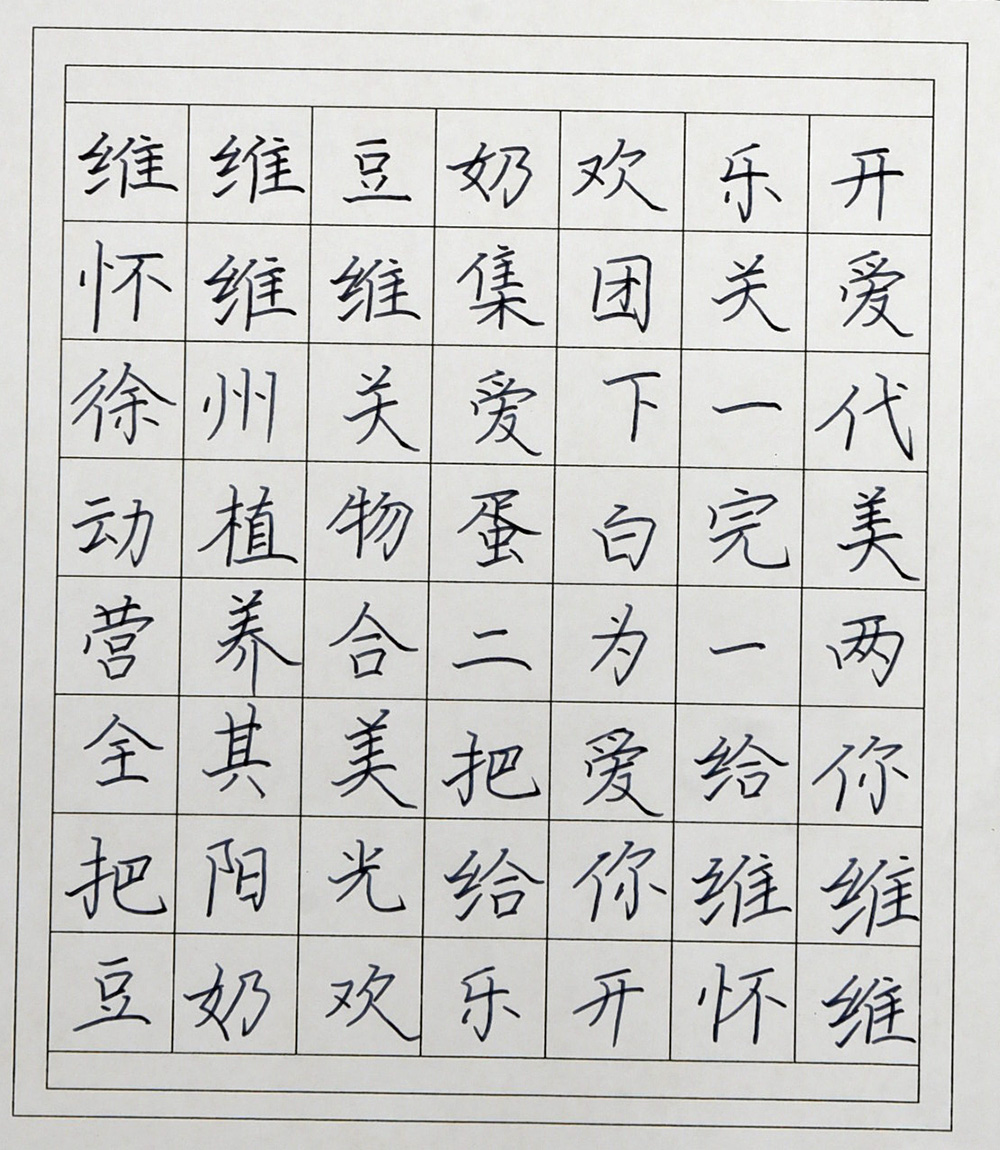 维维豆奶欢乐开
怀维维集团关爱
徐州关爱下一代
动植物蛋白完美
营养合二为一两
全其美把爱给你
把阳光给你维维
豆奶欢乐开怀维